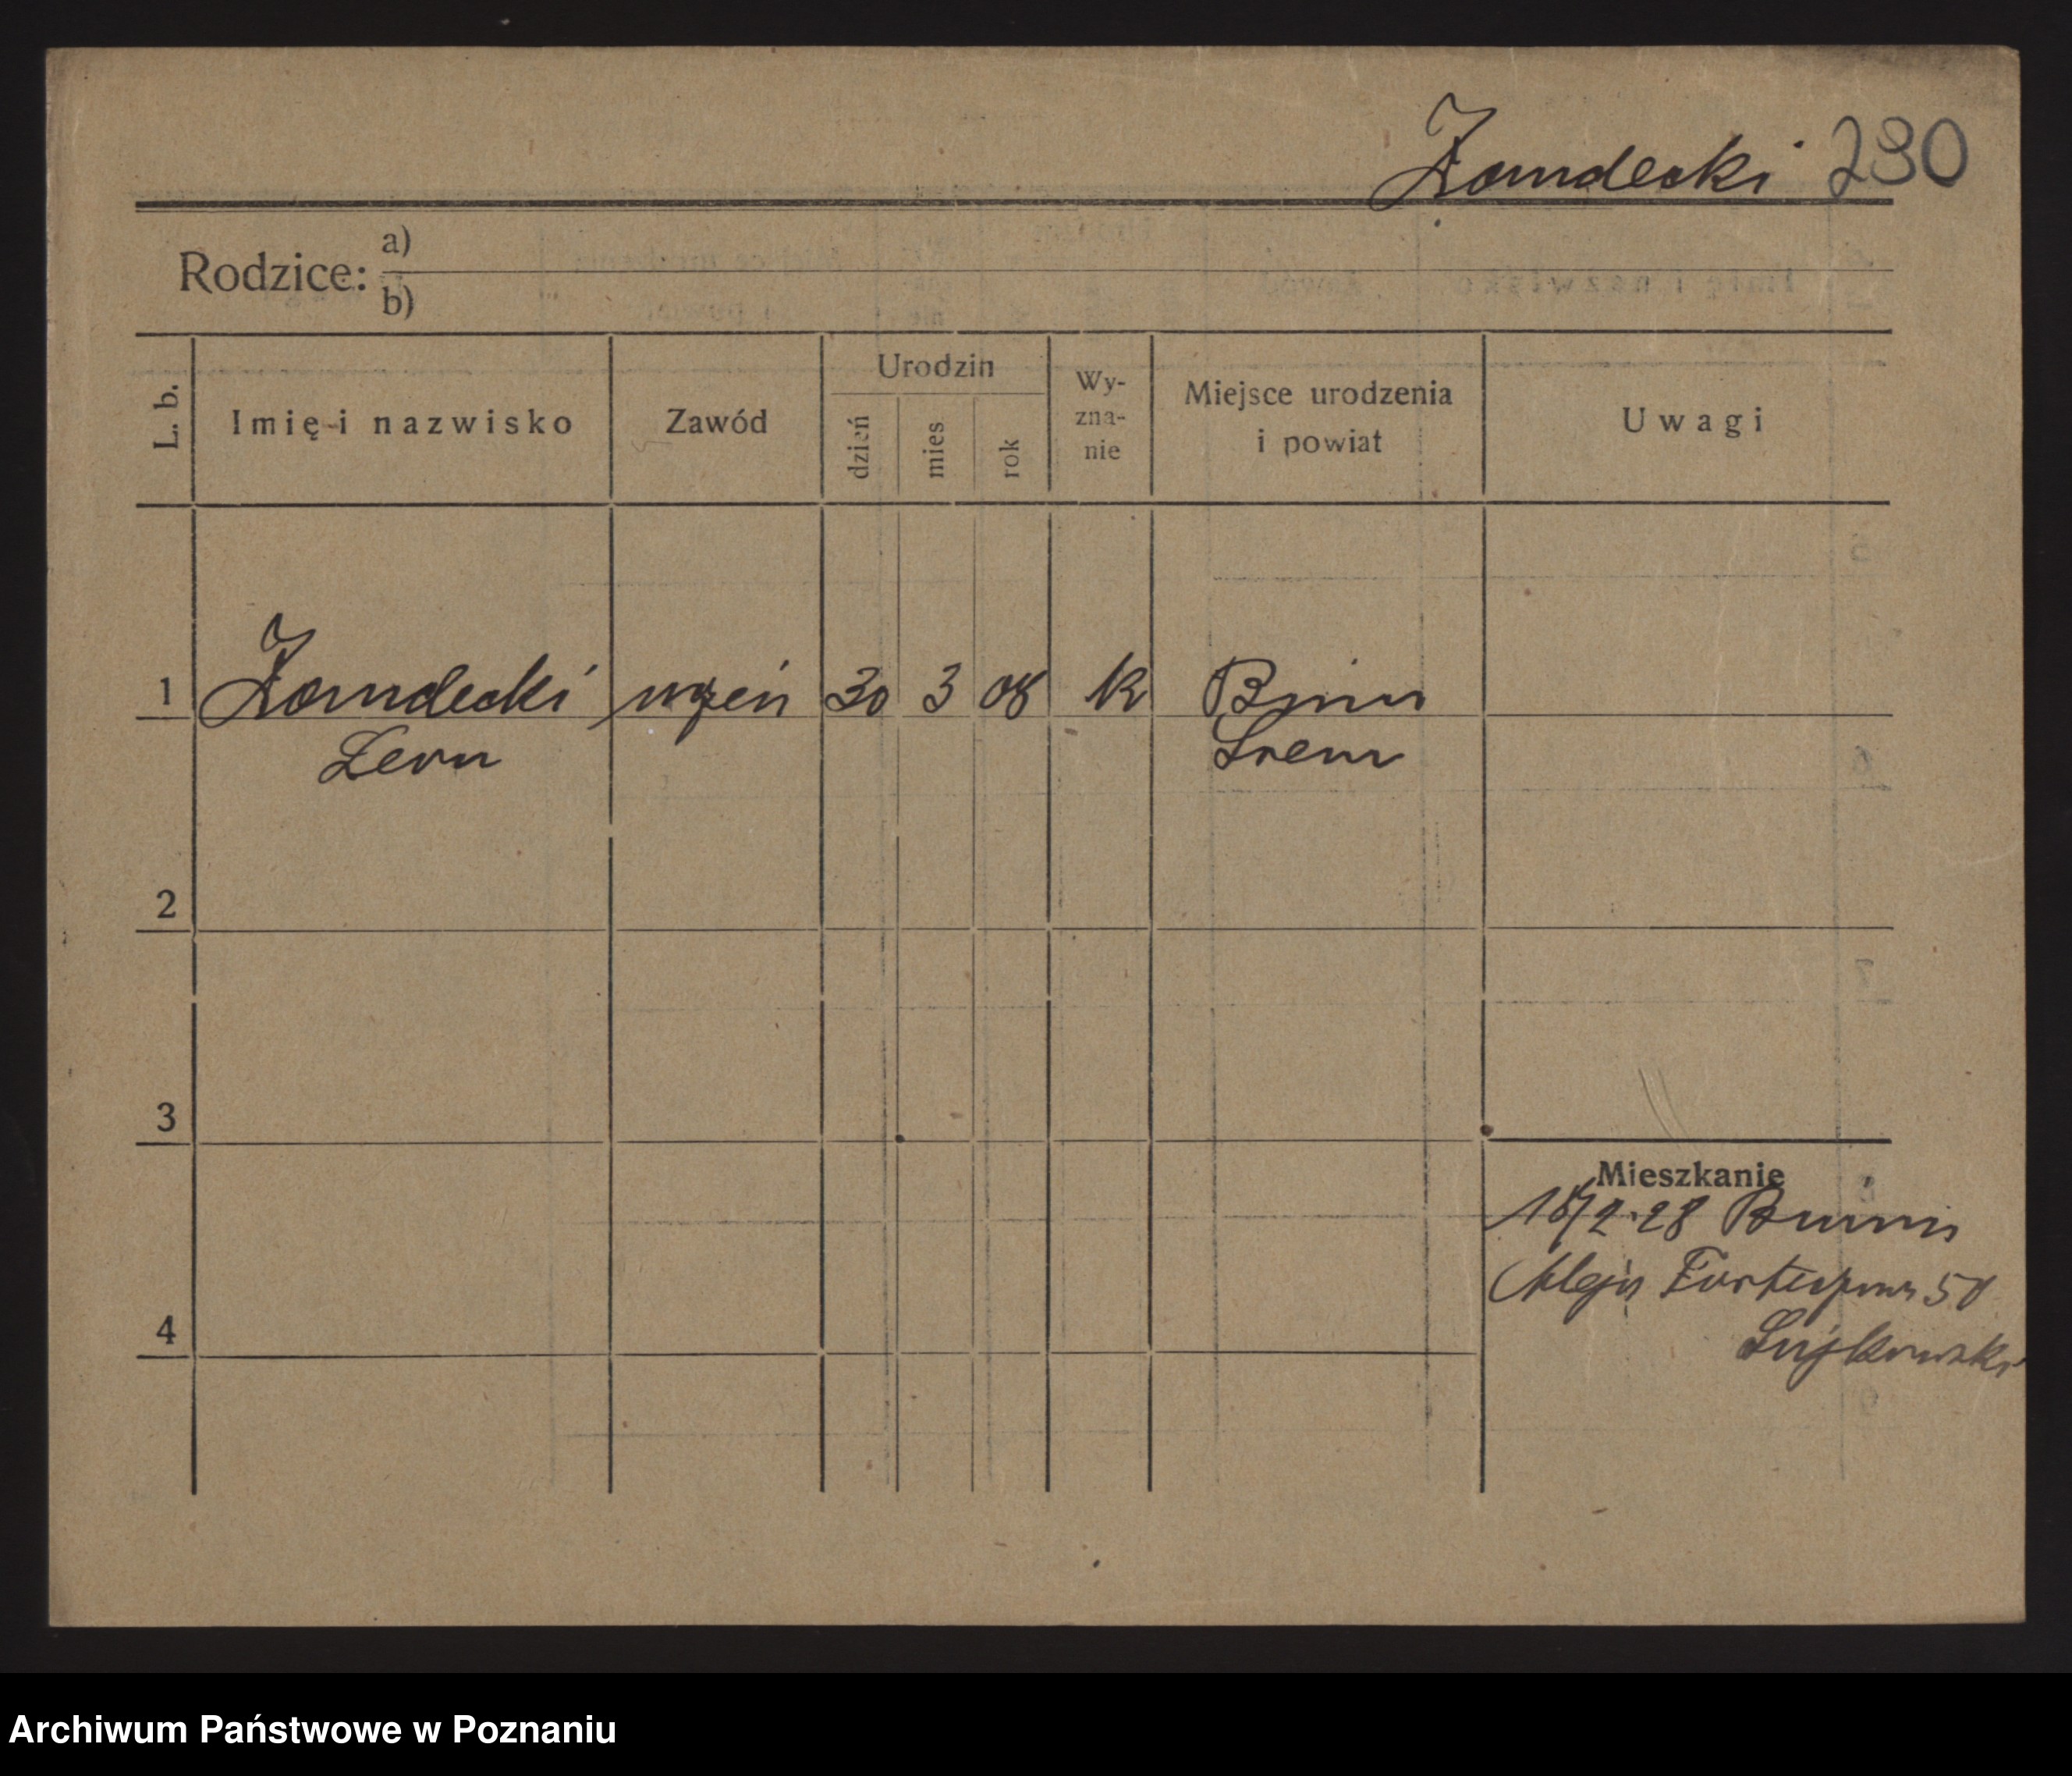 Zamdecki 290
Rodzice: a)
b)
L. b.
Imię i nazwisko
Zawód
Urodzin
dzień
mies
rok
Wy-
zna-
nie
Miejsce urodzenia
i powiat
Uwagi
1 Zamdecki uczeń 30 3 08 K Bnin
Leon Śrem
2
3
4
Mieszkanie
18/2.28 Bnin
Aleja 50
Archiwum Państwowe w Poznaniu